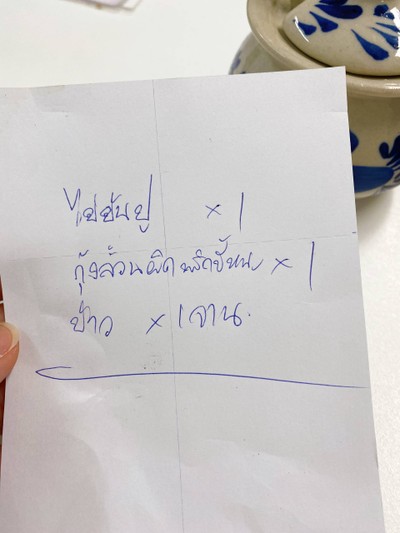 ไข่ข้นปู × 1
กุ้งล้วนผัดพริกขี้หนู × 1
ข้าว × 1 จาน.